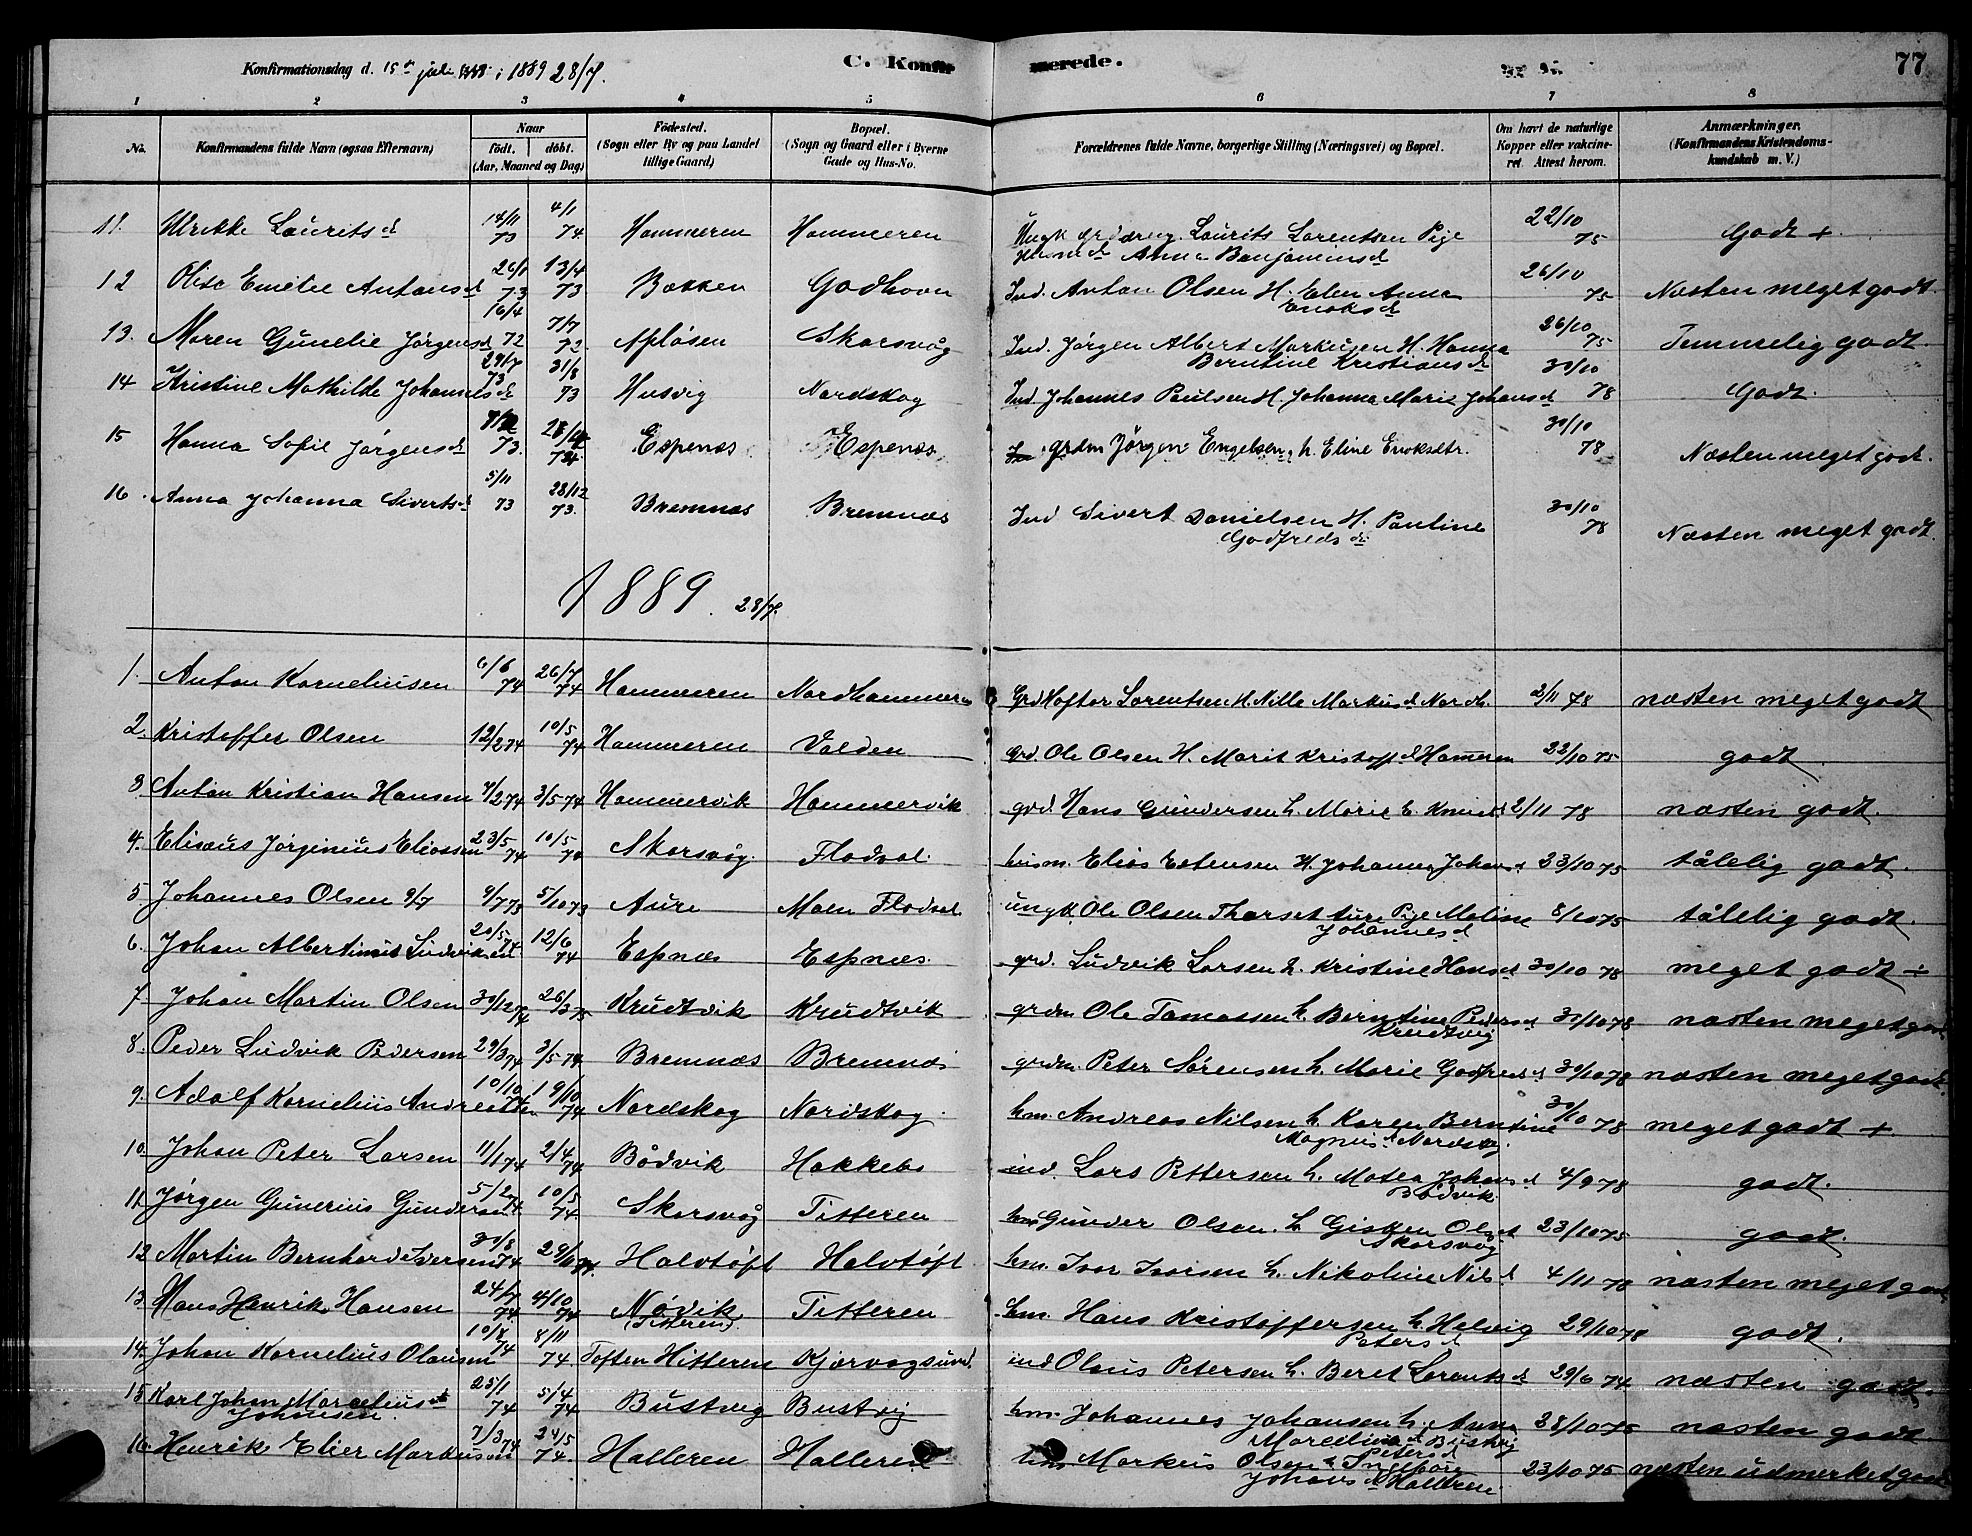 Konfirmationsdag d. 15de juli 1888 i 1889 28/7. C. Konfirmerede. 77
1 2 3 4 5 6 7 8
No. Konfirmandens fulde Navn (ogsaa Efternavn) Naar født. døbt. (Aar, Maaned og Dag) Fødested. (Sogn eller By og paa Landet tillige Gaard) Bopæl. (Sogn og Gaard eller i Byerne Gade og Hus-No. Forældrenes fulde Navne, borgerlige Stilling (Næringsvei) og Bopæl. Om havt de naturlige Kopper eller vakcineret. Attest herom. Anmærkninger. (Konfirmandens Kristendomskundskab m. V.)
11. Ulrikke Lauritsd 14/11 73 4/1 74 Hammeren Hammeren Ungk Laurits Lorentsen Pige Anna Benjaminsd 22/10 75 Godt +
12 Olise Emelie Antonsd 73 13/4 73 Bakken Godhavn Ind. Anton Olsen H. Elen Anna Enoksd 26/10 75 Næsten meget godt.
13. Maren Gunelie Jørgensd 16/4 72 7/7 72 Afløsen Skarsvåg Ind. Jørgen Albert Markusen H. Hanna Berntine Kristiansd 26/10 75 Temmelig godt.
14 Kristine Mathilde Johannesd 29/7 73 31/8 73 Husvig Nordskag Ind Johannes Paulsen H. Johanna Marie Johansd 30/10 78 Godt.
15 Hanna Sofie Jørgensd 73. Espenæs Espenæs grdm Jørgen Engelsen, h. Eline Enoksdtr. 30/10 78 Næsten meget godt.
16. Anna Johanna Sivertsd 5/11 73 28/12 73. Bremnæs Bremnæs Ind Sivert Danielsen H. Pauline Godfredsd 30/10 78 Næsten meget godt.
1889. 28/7.
1. Anton Korneliusen 6/6 74 26/7 74 Hammeren Nordhammeren Grd Hoftor Lorentsen H. Nille Markusd Nordh. 2/11 78 næsten meget godt
2. Kristoffer Olsen 12/2 74 10/5 74 Hammeren Valden grd. Ole Olsen H. Marit Kristoffd Hameren 23/10 75 godt.
3. Anton Kristian Hansen 4/2 74 3/5 74 Hammervik Hammervik grd Hans Gundersen h. Marie E. Knudsd 2/11 78 næsten godt.
4. Elisæus Jørginius Eliassen 23/5 74 10/5 74 Skarsvåg. Flodval. husm. Elias Estensen H. Johanna Johansd. 23/10 75 tålelig godt.
5. Johannes Olsen 9/7 9/7 73 5/10 73 Aure Moen Flodval ungk Ole Olsen Tharset Aure Pige Maline Johannesd 8/10 75 tålelig godt.
6. Johan Albertinus Ludviksen 20/5 74 12/6 74 Espnæs Espnæs. grd. Ludvik Larsen h. Kristine Hansd 30/10 78 meget godt ÷
7. Johan Martin Olsen 30/12 74 26/3 75 Krudtvik Krudtvik grdm Ole Tomassen h. Berntine Pedersd Krudtvig 30/10 78 næsten meget godt
8. Peder Ludvik Pedersen 29/3 74 3/5 74 Bremnæs Bremnæs grdm. Peter Sørensen h. Marie Godfredsd 30/10 78 næsten meget godt.
9. Adolf Kornelius Andreassen 10/10 74 19/10 74 Nordskag Nordskag. hm. Andreas Nilsen h. Karen Berntine Magnusd Nordskag. 30/10 78 meget godt +
10. Johan Peter Larsen 11/1 74 2/4 74 Bådvik Hakkebo ind. Lars Pettersen h. Matea Johansd Bådvik 4/9 78 godt.
11. Jørgen Gunerius Gundersen 5/2 74 10/5 74. Skarsvåg Titteren hm Gunder Olsen. h Gisken Olsd Skarsvåg 23/10 75 godt.
12. Martin Bernhard Iversen 30/8 74 74. Halvtøft Halvtøft. hm. Ivar Ivarsen h. Nikoline Nilsd 4/11 78 næsten meget godt
13. Hans Henrik Hansen 24/7 74 4/10 74 Nøvik (Titteren). Titteren hm. Hans Kristoffersen h. Helvig Petersd 29/10 78 godt.
14. Johan Kornelius Olausen 10/8 74 8/11 74 Toften Hitteren Kjørvagsund. ind Olaus Petersen h. Beret Lorentsd 29/6 74 næsten godt.
15. Karl Johan Marcelius Johansen. 25/1 74 5/4 74 Bustvig Bustvig hm. Johannes Johansen h. Anna Mareliusd Bustvig 28/10 75 næsten godt
16. Henrik Elier Markussen 7/3 74 24/5 74. Halleren Halleren hm Markus Olsen & Ingeborg Petersd Johansd Halleren. 23/10 75 næsten udmerket godt